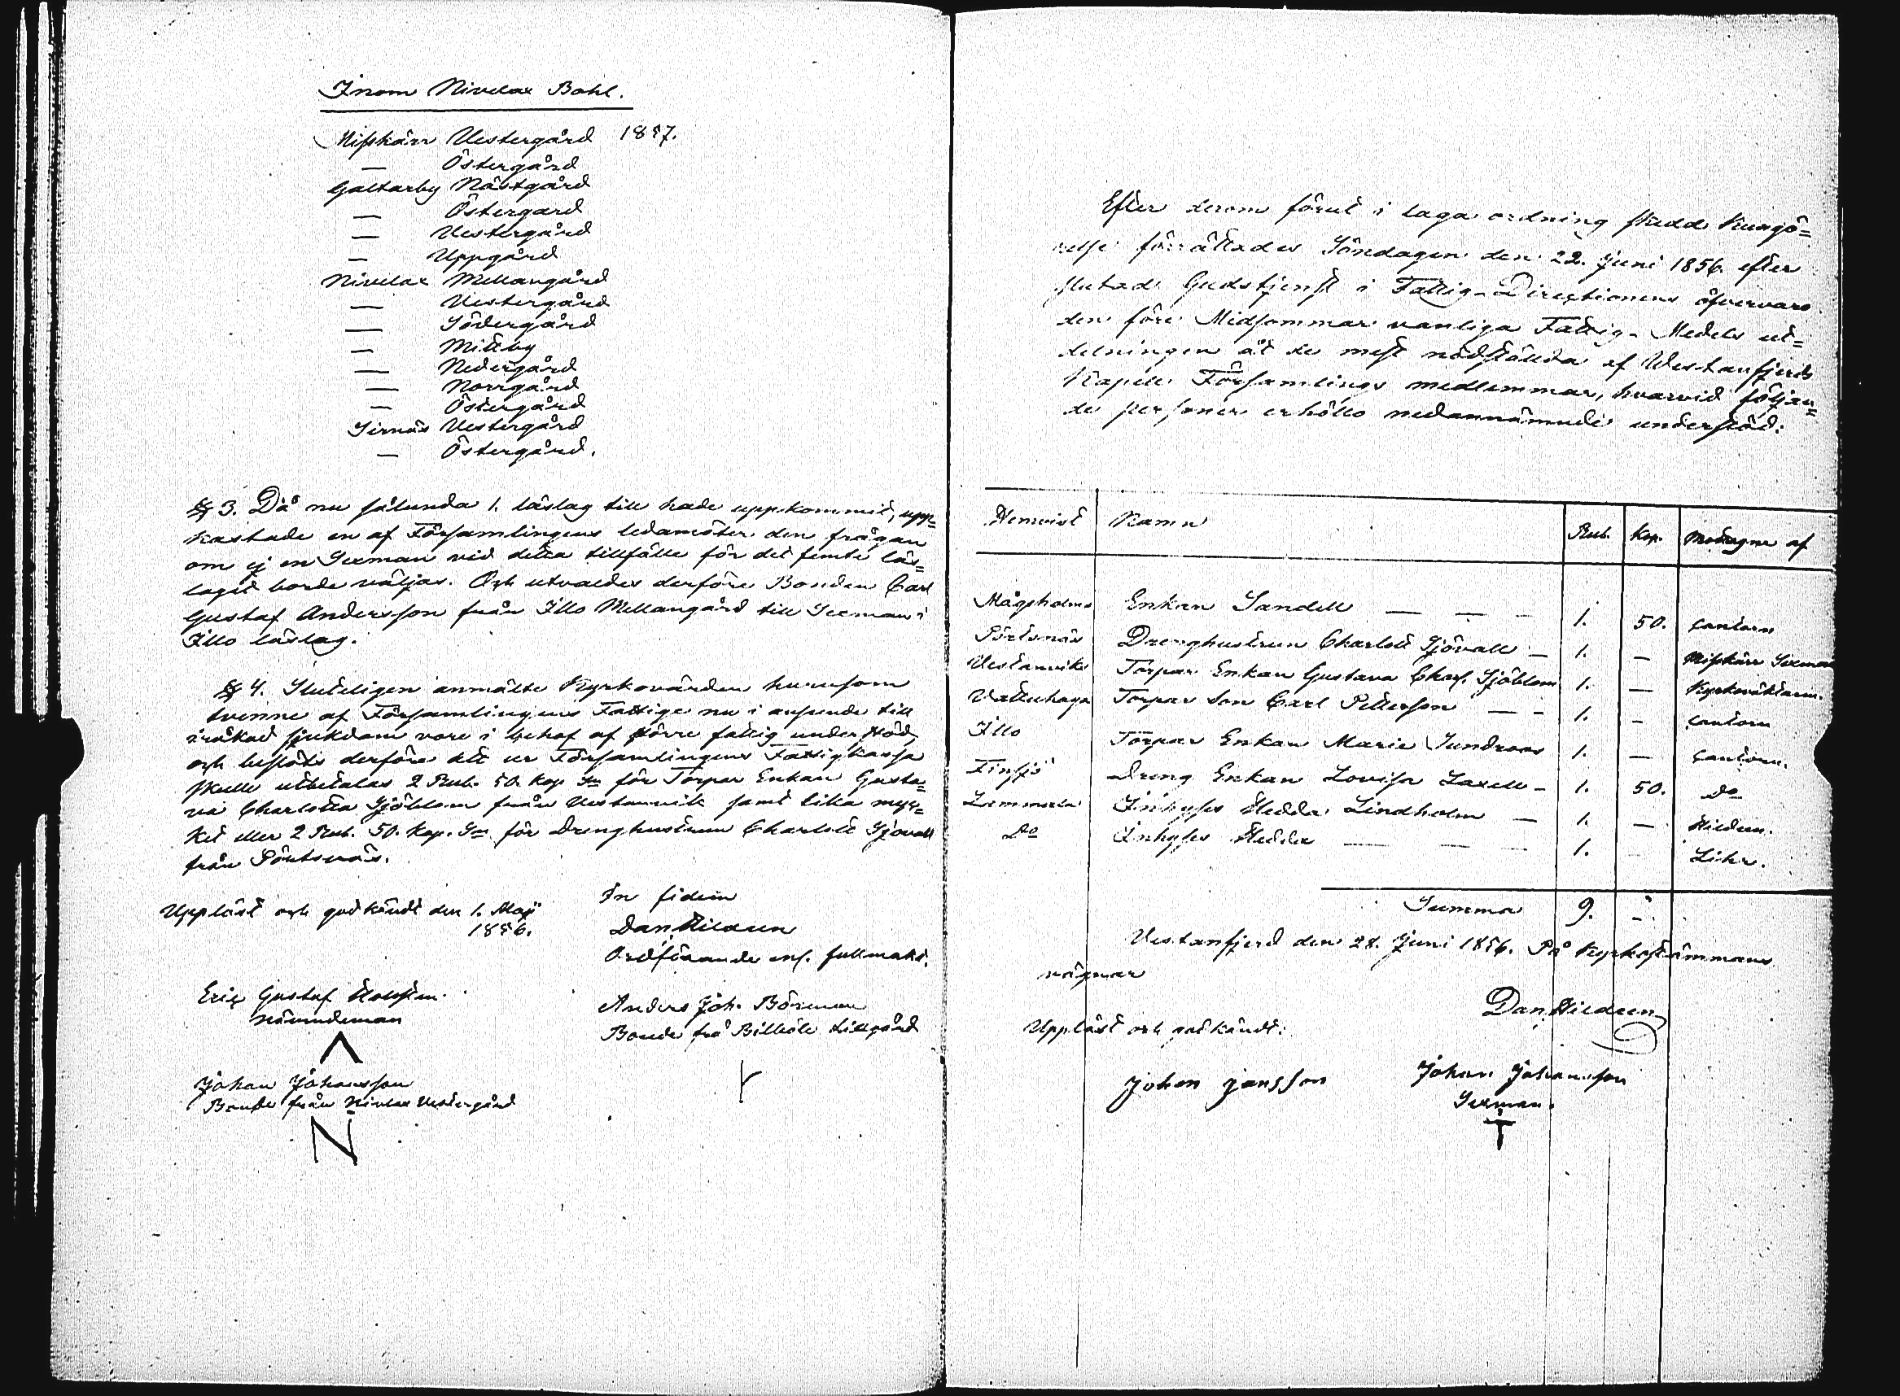 Inom Nivelax Bohl.
Nißskärr Vestergård 1857.
— Östergård
Galtarby Nästgård
— Östergard
— Vestergård
— Uppgård
Nivelax Mellangård
— Vestergård
— Södergård
— Mittby
— Nedergård
— Norrgård
— Östergård
Sirnäs Vestergård
— Östergård.
§ 3. Då nu sålunda 1. läslag till hade uppkommit, upp=
kastade en af Församlingens ledamöter den frågan
om ej en Sexman vid detta tillfälle för det femte läs=
laget borde väljas. Och utvaldes derföre Bonden Carl
Gustaf Andersson från Illo Mellangård till Sexman i
Illo läslag.
§ 4. Sluteligen anmälte Kyrkovärden hurusom
tvenne af Församlingens Fattige nu i anseende till
iråkad sjukdom vore i behof af större fattig understöd,
och beslöts derföre att ur Församlingens Fattigkassa
skulle utbetalas 2 Rub. 50. Kop. Sr för Torpar Enkan Gusta=
va Charlotta Sjöblom från Vestanvik samt lika myc=
ket eller 2 Rub. 50. Kop. Sr för Drenghustrun Charlott Sjövall
från Pörtsnäs.
Uppläst och godkändt den 1. Maji
1856.
In fidem
Dan. Hildeen
Ordförande enl. fullmakt.
Eric Gustaf
Nämndeman
Anders Joh. Böman
Bonde frå Billböle Lillgård
Johan Johansson
Bonde från Nivelax Vestergård
N
Efter derom förut i laga ordning skedd Kungö=
relse förrättades Söndagen den 22. Juni 1856. efter
slutad Gudstjenst i Fattig-Directionens öfvervaro
den före Midsommar vanliga Fattig-Medels ut=
delningen åt de mest nödställda af Westanfjerds
Kapell Församlings medlemmar, hvarvid följan=
de personer erhöllo nedannämnde understöd:
Hemvist Namn Rub. Kop. Mottagne af
Mågsholm Enkan Sandell — — — 1. 50. Cantorn
Pörtsnäs Drenghustrun Charlott Sjövall — 1. — Nißskärr Sexman
Vestanvik Torpar Enkan Gustava Charl. Sjöblom 1. — Kyrkoväktaren.
Vattuhaga Torpar Son Carl Petterson — — 1. — Cantorn
Illo Torpar Enkan Maria Sundroos 1. — Cantorn.
Finsjö Dreng Enkan Lovisa Laxell — 1. 50. Do
Lammala Inhyses Hedda Lindholm — 1. — Hildeen.
Do Inhyses Hedda — — — 1. — Lihr.
Summa 9. —
Vestanfjerd den 22. Juni 1856. På Kyrkostämmans
vägnar
Dan. Hildeen
Uppläst och godkändt:
Johan Jansson
Johan Johansson
Sexman.
T